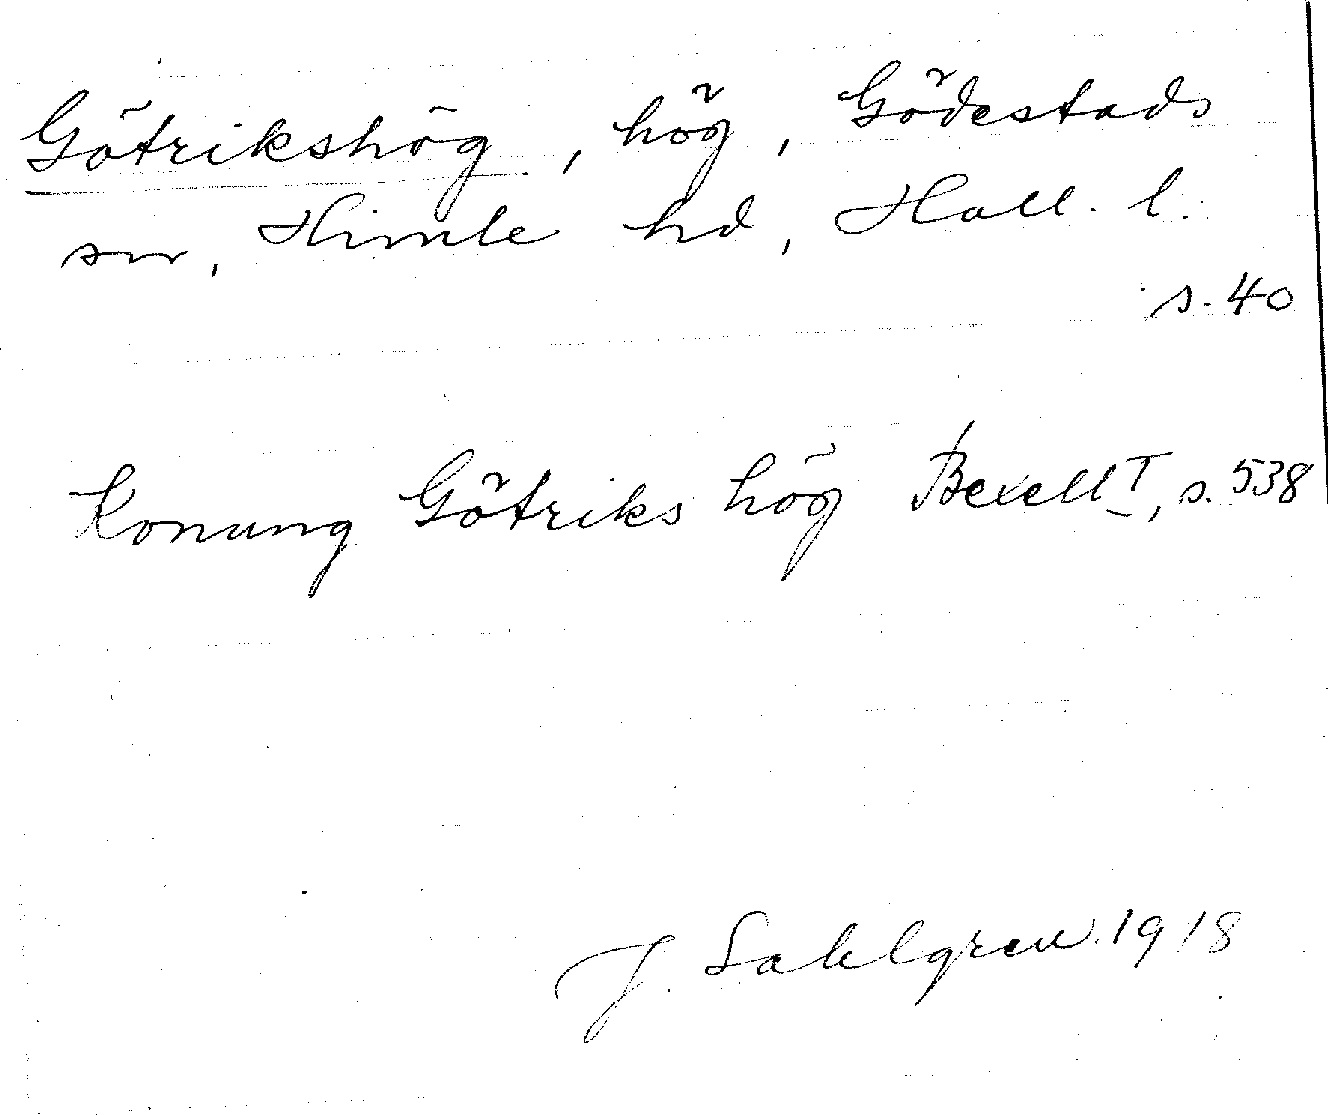 Götrikshög, hög, Gödestads
sn, Himle hd, Hall. l.
s. 40
Konung Götriks hög Bexell I, s. 538
J. Sahlgren 1918